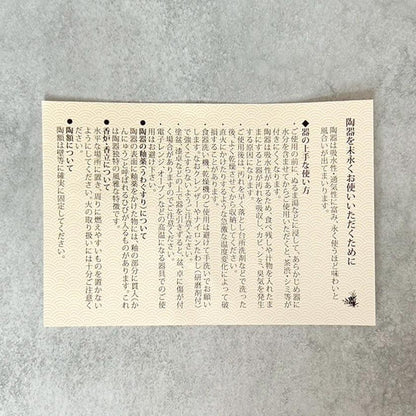 陶器を末永くお使いいただくために
陶器は吸水性・通気性に富み、永く使うほど味わいと
風合いが出てまいります。
◆器の上手な使い方
・ご使用の前に、ぬるま湯などに浸して、あらかじめ器に
水分を含ませてからご使用いただくと、茶渋・シミ等が
付きにくくなります。
・陶器は吸水性があるため、食べ残しや汁物を入れたま
まにすると器が汚れを吸収し、カビ、シミ、臭気を発生
する原因になります。
・ご使用後は、汚れを早く落とし台所洗剤などで洗った
後、よく乾燥させてから収納してください。
・直火にかけたりするような急激な温度変化によって破
損することがあります。
・食器洗い機、乾燥機のご使用は避けて手洗いでお願い
します。なお、クレンザーやナイロンたわし(研磨剤付)
で強くこすらないようご注意ください。
・塗盆、漆卓などの上で器を引きずると、盆、卓に傷が付
く場合がありますのでご注意ください。
・電子レンジ、オーブンなどの高温になる器具でのご使
用はお避け下さい。
◆陶器の釉薬(うわぐすり)について
陶器の表面に釉薬をかけた物には、釉の部分に貫入(か
んにゅう)と呼ばれるひびが入るものがあります。これ
は陶器独特の優雅な特徴です。
◆香炉・香立について
水平な場所に置き、周りに燃えやすいものを置かない
ようにしてください。火の取り扱いには十分ご注意く
ださい。
◆陶額について
陶額は壁等に確実に固定してください。